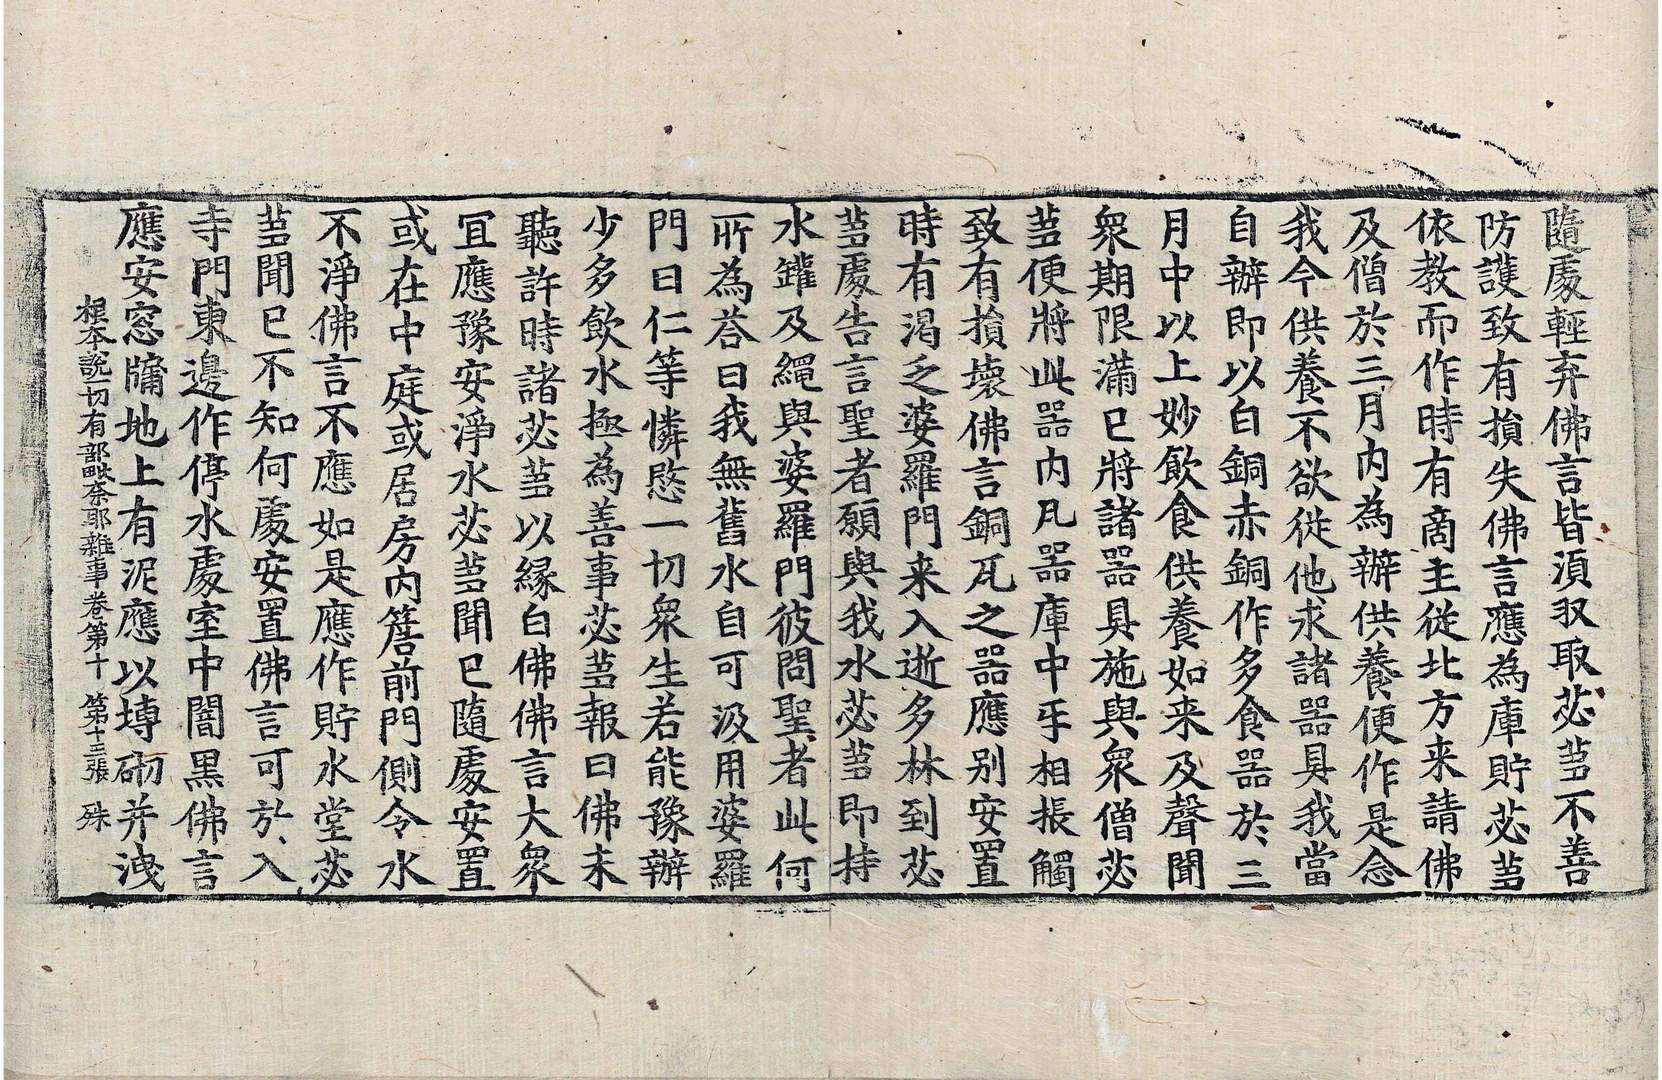 隨處輕弃佛言皆湏収取苾蒭不善
防護致有損失佛言應為庫貯苾蒭
依教而作時有商主從北方来請佛
及僧於三月內為辦供養便作是念
我今供養不欲從他求諸器具我當
自辦即以白銅赤銅作多食器於三
月中以上妙飲食供養如来及聲聞
衆期限滿已將諸器具施與衆僧苾
蒭便將此器內凡器庫中㸦相棖觸
致有損壞佛言銅瓦之器應別安置
時有渴乏婆羅門来入逝多林到苾
蒭處告言聖者願與我水苾蒭即持
水罐及繩與婆羅門彼問聖者此何
所為荅曰我無舊水自可汲用婆羅
門曰仁等憐愍一切衆生若能豫辦
少多飲水極為善事苾蒭報曰佛未
聽許時諸苾蒭以緣白佛佛言大衆
冝應豫安淨水苾蒭聞已隨處安置
或在中庭或居房內簷前門側令水
不淨佛言不應如是應作貯水堂苾
蒭聞已不知何處安置佛言可於入
寺門東邊作停水處室中闇黑佛言
應安窓牖地上有泥應以塼砌并洩
根本說一切有部毗奈耶雜事卷第十 第十三張 殊